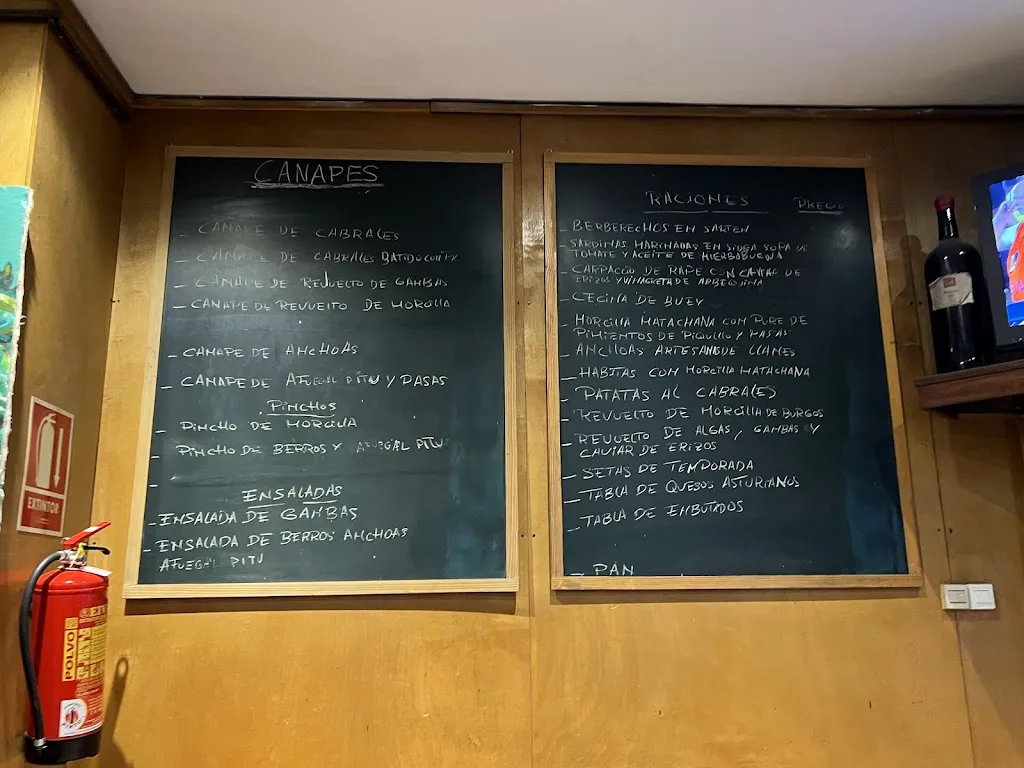 CANAPES
- CANAPE DE CABRALES
- CANAPE DE CABRALES BATIDO CON PX
- CANAPE DE REVUELTO DE GAMBAS
- CANAPE DE REVUELTO DE MORCILLA
- CANAPE DE ANCHOAS
- CANAPE DE AFUEGAL PITU Y PASAS
PINCHOS
- PINCHO DE MORCILLA
- PINCHO DE BERROS Y AFUEGAL PITU
-
ENSALADAS
- ENSALADA DE GAMBAS
- ENSALADA DE BERROS ANCHOAS
AFUEGAL PITU
RACIONES PRECIO
- BERBERECHOS EN SARTEN
- SARDINAS MARINADAS EN SIDRA SOPA DE
TOMATE Y ACEITE DE HIERBABUENA
- CARPACCIO DE RAPE CON CAVIAR DE
ERIZOS Y VINAGRETA DE ARBEQUINA
- CECINA DE BUEY
- MORCILLA MATACHANA CON PURE DE
PIMIENTOS DE PIQUILLO Y PASAS
- ANCHOAS ARTESANS DE LLANES
- HABITAS CON MORCILLA MATACHANA
- PATATAS AL CABRALES
- REVUELTO DE MORCILLA DE BURGOS
- REVUELTO DE ALGAS, GAMBAS Y
CAVIAR DE ERIZOS
- SETAS DE TEMPORADA
- TABLA DE QUESOS ASTURIANOS
- TABLA DE EMBUTIDOS
- PAN
EXTINTOR
POLVO